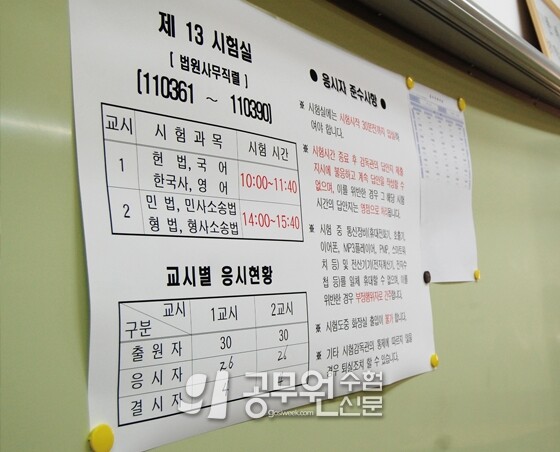 제 13 시험실
[ 법원사무직렬 ]
[110361 ~ 110390]
교시 시 험 과 목 시험 시간
1 헌 법, 국 어 10:00~11:40
한국사, 영 어
2 민 법, 민사소송법 14:00~15:40
형 법, 형사소송법
교시별 응시현황
교시 1교시 2교시
구분
출 원 자 30 30
응 시 자 26 26
결 시 자
● 응시자 준수사항 ●
※ 시험실에는 시험시작 30분전까지 입실해
여야 합니다.
※ 시험시간 종료 후 감독관의 답안지 제출
지시에 불응하고 계속 답안을 작성할 수
없으며, 이를 위반한 경우 그 해당 시험
시간의 답안지는 영점으로 처리됩니다.
※ 시험 중 통신장비(휴대전화기, 호출기,
이어폰, MP3플레이어, PMP, 스마트워
치 등) 및 전산기기(전자계산기, 전자수
첩 등)를 일체 휴대할 수 없으며, 이를
위반한 경우 부정행위자로 간주합니다.
※ 시험도중 화장실 출입이 불가 합니다.
※ 기타 시험감독관의 통제에 따르지 않을
경우 퇴실조치 할 수 있습니다.
공무원수험신문
gosiweek.com